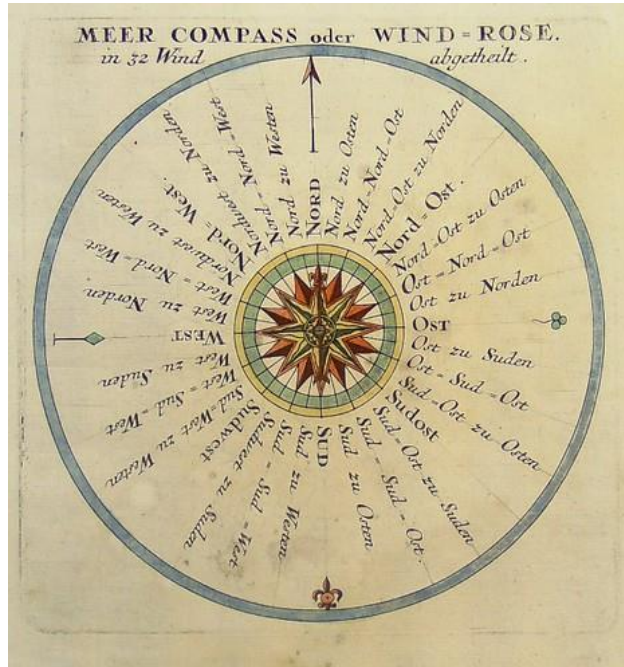 MEER COMPASS oder WIND=ROSE.
in 32 Wind abgetheilt.
NORD
Nord zu Osten
Nord=Nord=Ost
Nord=Ost zu Norden
Nord=Ost.
Nord=Ost zu Osten
Ost=Nord=Ost
Ost zu Norden
OST
Ost zu Suden
Ost=Sud=Ost
Sud=Ost zu Osten
Sudost
Sud=Ost zu Suden
Sud=Sud=Ost.
Sud zu Osten
SUD
Sud zu Westen
Sud=Sud=West
Sudwest zu Suden
Sudwest
Sud=West zu Westen
West=Sud=West
West zu Suden
WEST
West zu Norden
West=Nord=West
Nordwest zu Westen
Nord=West.
Nordwest zu Norden
Nord=Nord=West
Nord zu Westen